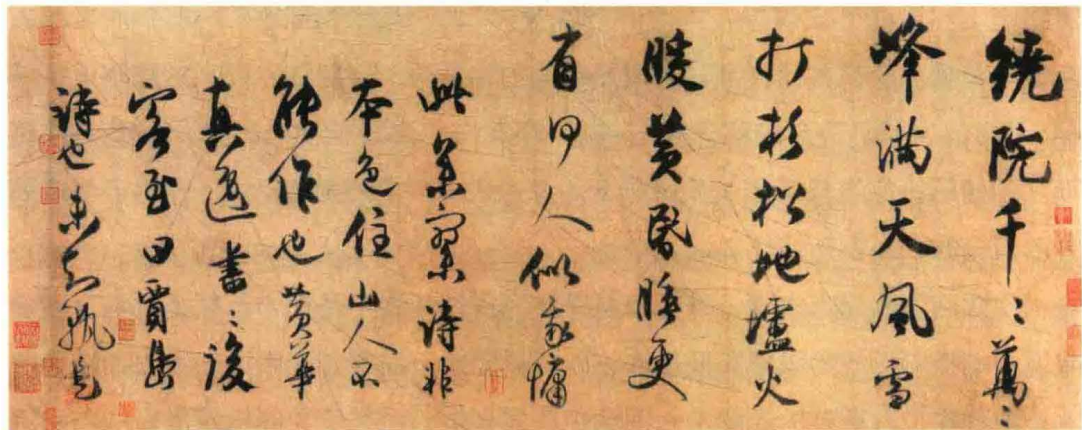 繞院千〻萬〻
峰滿天風雪
打杉松地壚火
暖黃昏睡更
有何人似我慵
此參寥詩非
本色住山人不
能作也黃華
真逸書〻後
客至曰賈島
詩也未知孰是